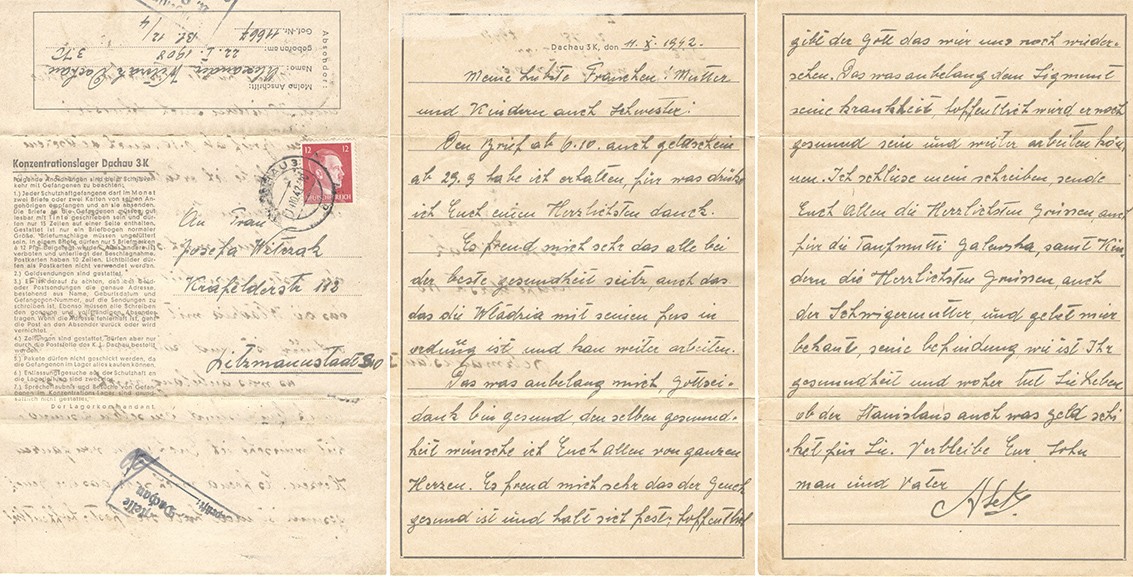 Absender:
Meine Anschrift:
Name: Alexander Witczak Dachau
geboren am: 22. I. 1908 3 K
Gef.-Nr. 11667 Bl. 12/4
Konzentrationslager Dachau 3 K
Folgende Anordnungen sind beim Schriftver-
kehr mit Gefangenen zu beachten:
1.) Jeder Schutzhaftgefangene darf im Monat
zwei Briefe oder zwei Karten von seinen An-
gehörigen empfangen und an sie absenden.
Die Briefe an die Gefangenen müssen gut
lesbar mit Tinte geschrieben sein und dür-
fen nur 15 Zeilen auf einer Seite enthalten.
Gestattet ist nur ein Briefbogen normaler
Größe. Briefumschläge müssen ungefüttert
sein. In einem Briefe dürfen nur 5 Briefmarken
à 12 Pfg. beigelegt werden. Alles andere ist
verboten und unterliegt der Beschlagnahme.
Postkarten haben 10 Zeilen. Lichtbilder dür-
fen als Postkarten nicht verwendet werden.
2.) Geldsendungen sind gestattet.
3.) Es ist darauf zu achten, daß bei Geld-
oder Postsendungen die genaue Adresse,
bestehend aus Name, Geburtsdatum und
Gefangenen-Nummer, auf die Sendungen zu
schreiben ist. Ebenso müssen alle Schreiben
den genauen und vollständigen Absender
tragen. Wenn die Adresse fehlerhaft ist, geht
die Post an den Absender zurück oder wird
vernichtet.
4.) Zeitungen sind gestattet, dürfen aber nur
durch die Poststelle des K. L. Dachau bestellt
werden.
5.) Pakete dürfen nicht geschickt werden, da
die Gefangenen im Lager alles kaufen können.
6.) Entlassungsgesuche aus der Schutzhaft an
die Lagerleitung sind zwecklos.
7.) Sprecherlaubnis und Besuche von Gefan-
genen im Konzentrations-Lager sind grund-
sätzlich nicht gestattet.
Der Lagerkommandant
12 12
DEUTSCHES REICH
DACHAU 3
An Frau
Josefa Witczak
Krefelderstr 133
Litzmannstadt
Dachau
Dachau 3 K, den 11. X. 1942.
Meine Liebste Frauchen! Mutter
und Kindern auch Schwester!
Den Brief ab 6.10. auch geldschein
ab 29.9 habe ich erhalten, für was drücke
ich Euch einen Herzlichsten danck.
Es freud mich sehr das alle bei
der beste gesundheit seitz, auch das
das die Wladzia mit seinen fus in
ordnüng ist und kan weiter arbeiten.
Das was anbelang mich, Gottsei-
dank bin gesund, den selben gesund-
heit wünsche ich Euch allen von ganzen
Herzen. Es freud mich sehr das der Genek
gesund ist und halt sich fest, hoffentlich
gibt der Gott das wier uns noch wieder-
sehen. Das was anbelang dem Sigmunt
seine krankheit, hoffentlich wird er noch
gesund sein und weiter arbeiten kön-
nen. Ich schliese mein schreiben, sende
Euch Allen die Herzlichsten Grüssen auch
für die Taufmutti Galewska, samt Kin-
dern die Herzlichsten Grüssen, auch
der Schwigermutter, und gebet mir
bekant, seine befindung wie ist Ihr
gesundheit und woher tut Sie leben
ob der Stanislaus auch was geld schi-
ket für Sie. Verbleibe Eur. Sohn
man und Vater
Alek